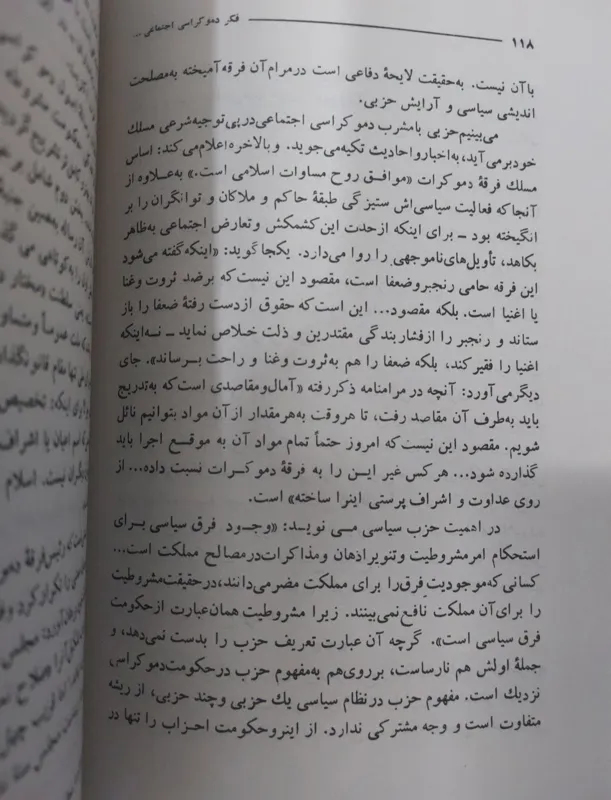 ۱۱۸
فکر دموکراسی اجتماعی ...
با آن نیست. به‌حقیقت لایحهٔ دفاعی است در مرام آن فرقه آمیخته به‌مصلحت
اندیشی سیاسی و آرایش حزبی.
می‌بینیم حزبی با مشرب دموکراسی اجتماعی در پی توجیه شرعی مسلك
خود بر می‌آید، به اخبار و احادیث تکیه می‌جوید. و بالاخره اعلام می‌کند: اساس
مسلك فرقهٔ دموکرات «موافق روح مساوات اسلامی است.» به‌علاوه از
آنجا که فعالیت سیاسی‌اش ستیزگی طبقهٔ حاکم و ملاکان و توانگران را بر
انگیخته بود ـ برای اینکه از حدت این کشمکش و تعارض اجتماعی به‌ظاهر
بکاهد، تأویل‌های ناموجهی را روا می‌دارد. یکجا گوید: «اینکه گفته می‌شود
این فرقه حامی رنجبر و ضعفا است، مقصود این نیست که بر ضد ثروت و غنا
یا اغنیا است. بلکه مقصود... این است که حقوق از دست رفتهٔ ضعفا را باز
ستاند و رنجبر را از فشار بندگی مقتدرین و ذلت خلاص نماید ـ نه اینکه
اغنیا را فقیر کند، بلکه ضعفا را هم به ثروت و غنا و راحت برساند». جای
دیگر می‌آورد: آنچه در مرامنامه ذکر رفته «آمال و مقاصدی است که به‌تدریج
باید به‌طرف آن مقاصد رفت، تا هر وقت به هر مقدار از آن مواد بتوانیم نائل
شویم. مقصود این نیست که امروز حتماً تمام مواد آن به موقع اجرا باید
گذارده شود... هر کس غیر ایـن را به فرقهٔ دموکـرات نسبت داده... از
روی عداوت و اشراف پرستی اینرا ساخته» است.
در اهمیت حزب سیاسی مـی نویـد: «وجـود فرق سیاسی بـرای
استحکام امر مشروطیت و تنویر اذهان و مذاکرات در مصالح مملکت است...
کسانی که موجودیت فِرق را برای مملکت مضر می‌دانند، در حقیقت مشروطیت
را برای آن مملکت نافع نمی‌بینند. زیرا مشروطیت همان عبارت از حکومت
فرق سیاسی است». گرچه آن عبارت تعریف حزب را بدست نمی‌دهد، و
جملهٔ اولش هم نارساست، بر روی هم به مفهوم حزب در حکومت دموکراسی
نزدیك است. مفهوم حزب در نظام سیاسی یك حزبی و چند حزبی، از ریشه
متفاوت است و وجه مشترکی ندارد. از اینرو حکومت احـزاب را تنها در